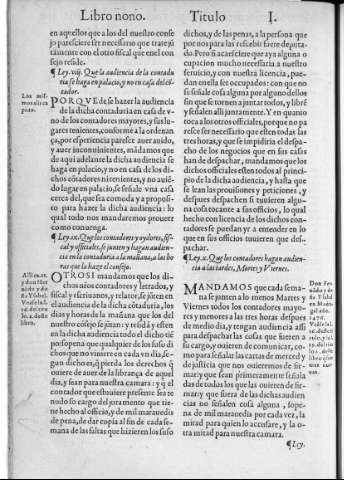 Libro nono. Titulo I.
en aquellos que a los del nuestro conse
jo pareciere ser necessario que traten jũ
tamente con el otro fiscal que en el con
sejo reside.
¶ Ley. viij. Que la audiencia de la contadu
ria se haga en palacio, y no en casa del cõ
tador.
Los mis-
mos alli ca
PORQVE de se hazer la audiencia
de la dicha contaduria en casa de v-
no de los contadores mayores, y sus lu-
gares tenientes, conforme a la ordenan
ça, por esperiencia paresce auer auido,
y auer inconuinientes, mãdamos que
de aqui adelante la dicha audiencia se
haga en palacio, y no en casa de los di-
chos cõtadores ni tenientes, y no auiẽ-
do lugar en palacio, se señale vna casa
cerca del, que sea comoda y a proposi-
to para hazer la dicha audiencia: lo
qual todo nos mandaremos proueer
como conuenga.
¶ Ley. ix. Que los contadores y oydores, fis-
cal y officiales, se junten y hagan audien-
cia en la contaduria a la mañana, a las ho
ras que la haze el consejo.
OTROSI mandamos que los di-
chos nũos contadores y letrados, y
fiscal y escriuanos, y relator, se jũten en
el audiencia de la dicha cõtaduria, los
dias y horas de la mañana que los del
nuestro cõsejo se jũtan: y residã y estẽn
en la dicha audiencia todo el dicho tiẽ
po so pena que qualquier de los suso di
chos que no viniere en cada vn dia, se-
gun dicho es, ꝗ̃ pierda los derechos ꝗ̃
ouiere de auer de la librança de aquel
dia, y sean para nuestra camara: y ꝗ̃ el
contador que estouiere presente sea te
nudo so cargo del juramento que tie-
ne hecho al officio, y de mil marauedis
de pena, de dar copia al fin de cada se-
mana de las faltas que hizieren los suso
dichos, y de las penas, a la persona que
por nos para las rescebir fuere deputa-
do. Pero si acaesciere que aya alguna o
cupacion mucho necessaria a nuestro
seruicio, y con nuestra licencia, pue-
dan en ella ser occupados: con que no
se señale cosa alguna por alguno dellos
sin que se tornen a juntar todos, y librẽ
y señalen alli juntamente. Y en quanto
toca a los otros officiales, porque no pa
resce ser necessario que esten todas las
tres horas, y que se impidiria el despa-
cho de los negocios que en sus casas
han de despachar, mandamos que los
dichos officiales esten todos al princi-
pio de la dicha audiencia, y hasta que
se lean las prouisiones y peticiones, y
despues despachen si tuuieren alguna
cosa tocante a sus officios, lo qual
hecho con licencia de los dichos conta-
dores se puedan yr a entender en lo
que en sus officios tuuieren que des-
pachar.
¶ Ley. x. Que los contadores hagan audien-
cia a las tardes, Martes y Viernes.
MANDAMOS que cada sema-
na se junten a lo menos Martes y
Viernes todos los contadores mayo-
res y menores a las tres horas despues
de medio dia, y tengan audiencia alli
para despachar las cosas que fueren a
su cargo, y ouieren de comunicar, co-
mo para señalar las cartas de merced y
de justicia que nos ouieremos de fir-
mar y que sean primeramente señala
das de todos los que las ouieren de fir-
mar: y que fuera de las dichas audien
cias no señalen cosa alguna, so pe-
na de mil marauedis por cada vez, la
mitad para quien lo accusare, y la o-
tra mitad para nuestra camara.
¶ Ley.